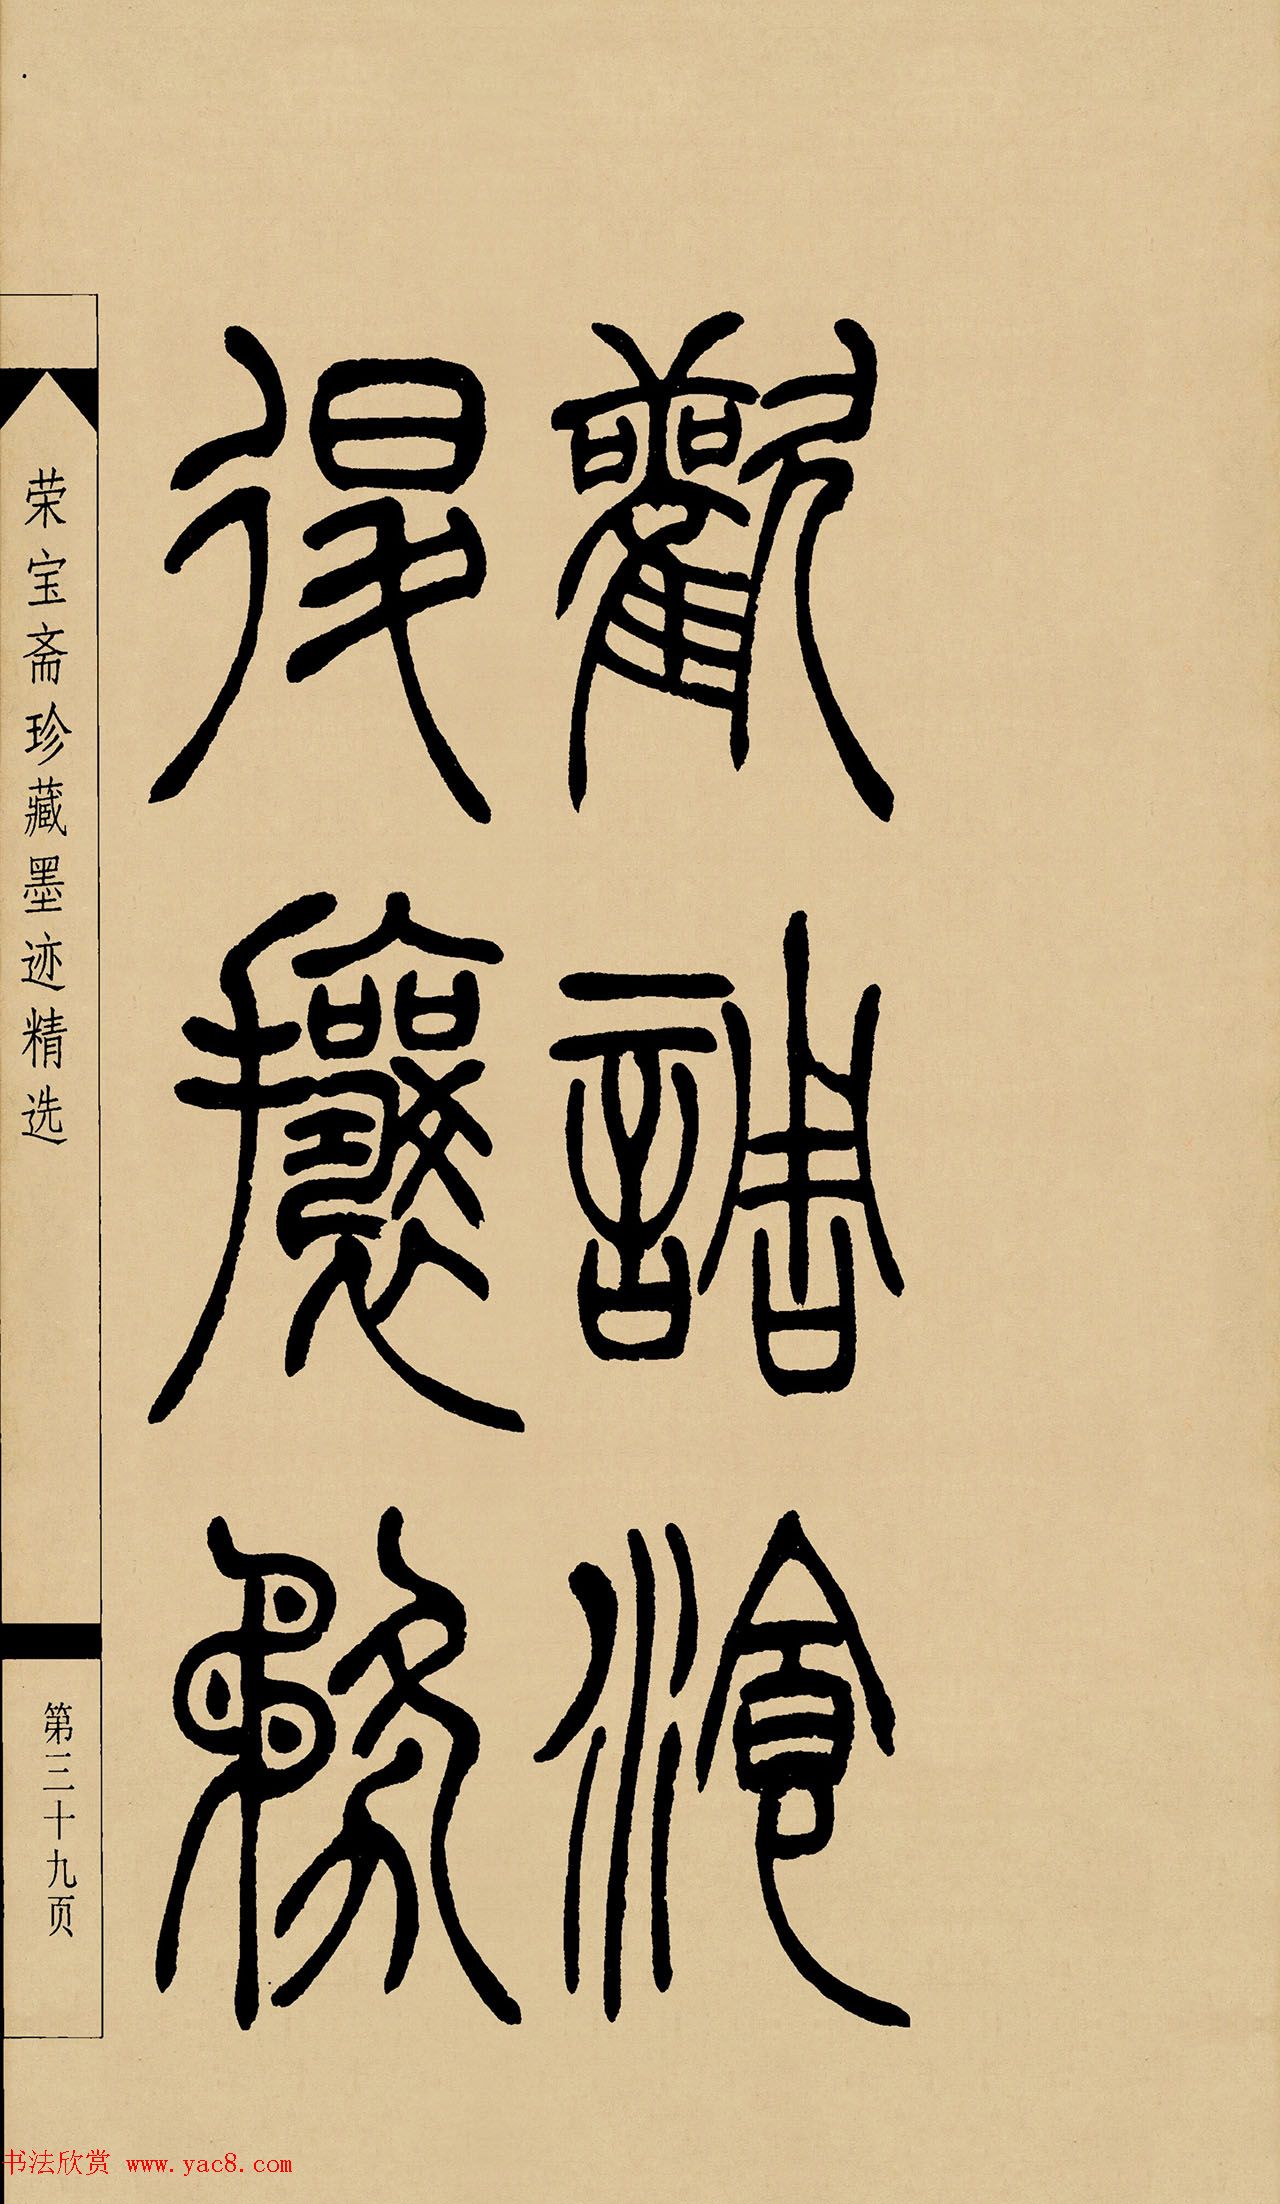 歡調湌
退攘務
荣宝斋珍藏墨迹精选
第三十九页
书法欣赏 www.yac8.com